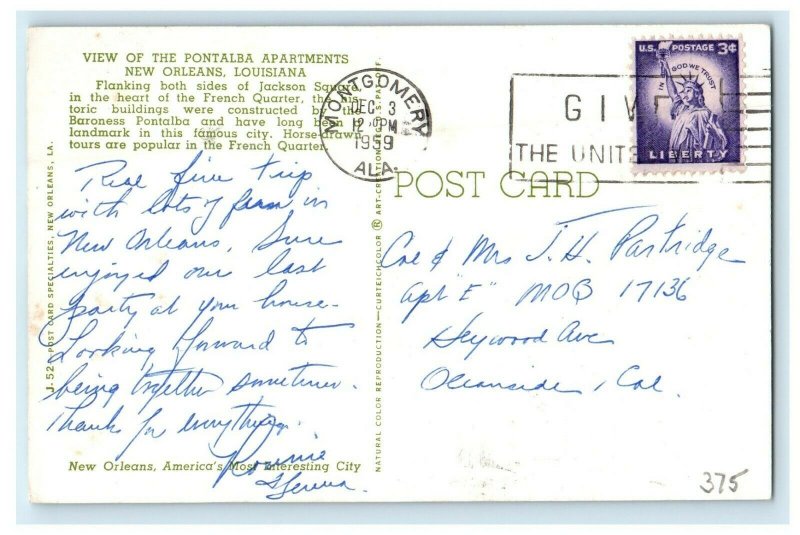 VIEW OF THE PONTALBA APARTMENTS
NEW ORLEANS, LOUISIANA
Flanking both sides of Jackson Square,
in the heart of the French Quarter, the his-
toric buildings were constructed by the
Baroness Pontalba and have long been a
landmark in this famous city. Horse-drawn
tours are popular in the French Quarter.
Real fine trip
with lots of fun in
New Orleans. Sure
enjoyed our last
party at your house.
Looking forward to
being together sometime.
Thanks for everything.
Ronnie
New Orleans, America's Most Interesting City
J-52 POST CARD SPECIALTIES, NEW ORLEANS, LA.
NATURAL COLOR REPRODUCTION—CURTEICHCOLOR ® ART-CREATION
MONTGOMERY
DEC 3
12 PM
1959
ALA.
GIVE
THE UNITED
U.S. POSTAGE 3¢
IN GOD WE TRUST
LIBERTY
POST CARD
Col & Mrs J. H. Partridge
Apt "E" MOQ 17136
Heywood Ave
Oceanside, Cal.
375